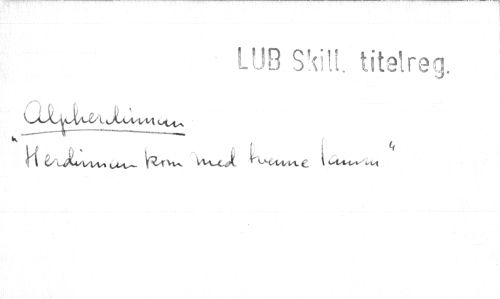 LUB Skill. titelreg.
Alpherdinnan
"Herdinnan kom med tvenne lamm"